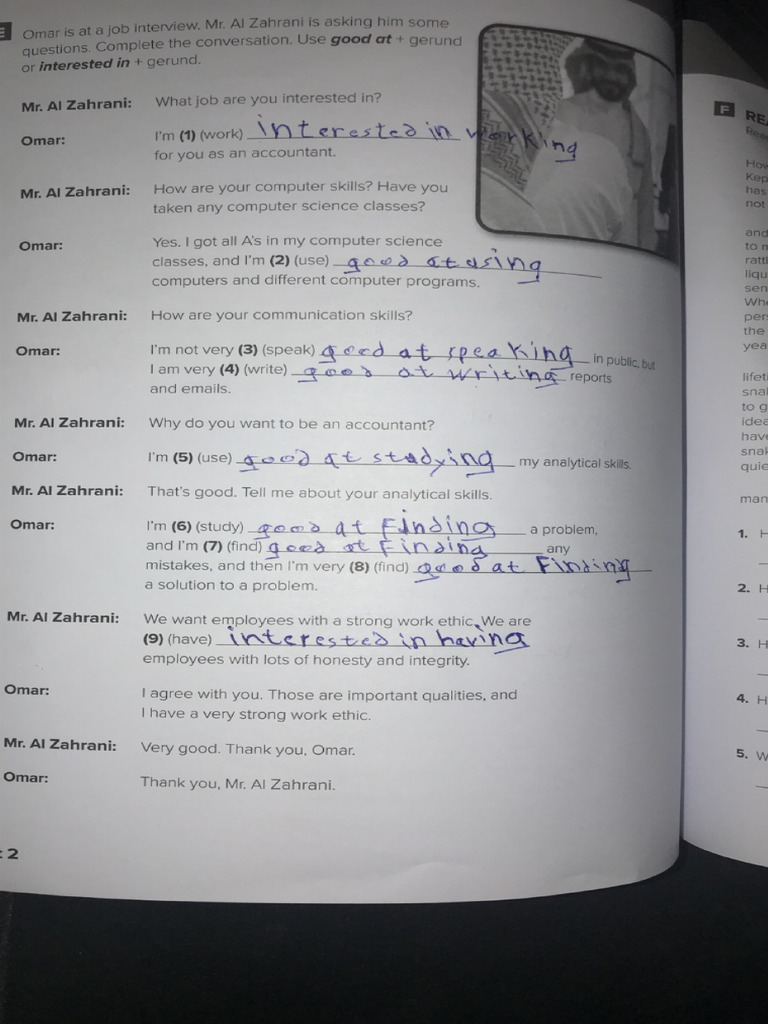 E Omar is at a job interview. Mr. Al Zahrani is asking him some
questions. Complete the conversation. Use good at + gerund
or interested in + gerund.
Mr. Al Zahrani: What job are you interested in?
Omar: I'm (1) (work) interested in working
for you as an accountant.
Mr. Al Zahrani: How are your computer skills? Have you
taken any computer science classes?
Omar: Yes. I got all A's in my computer science
classes, and I'm (2) (use) good at using
computers and different computer programs.
Mr. Al Zahrani: How are your communication skills?
Omar: I'm not very (3) (speak) good at speaking in public, but
I am very (4) (write) good at writing reports
and emails.
Mr. Al Zahrani: Why do you want to be an accountant?
Omar: I'm (5) (use) good at studying my analytical skills.
Mr. Al Zahrani: That's good. Tell me about your analytical skills.
Omar: I'm (6) (study) good at Finding a problem,
and I'm (7) (find) good at Finding any
mistakes, and then I'm very (8) (find) good at Finding
a solution to a problem.
Mr. Al Zahrani: We want employees with a strong work ethic. We are
(9) (have) interested in having
employees with lots of honesty and integrity.
Omar: I agree with you. Those are important qualities, and
I have a very strong work ethic.
Mr. Al Zahrani: Very good. Thank you, Omar.
Omar: Thank you, Mr. Al Zahrani.
2
F
How
has
not
and
to
the
to
have
man
1. H
2. H
3. H
4. H
5. W